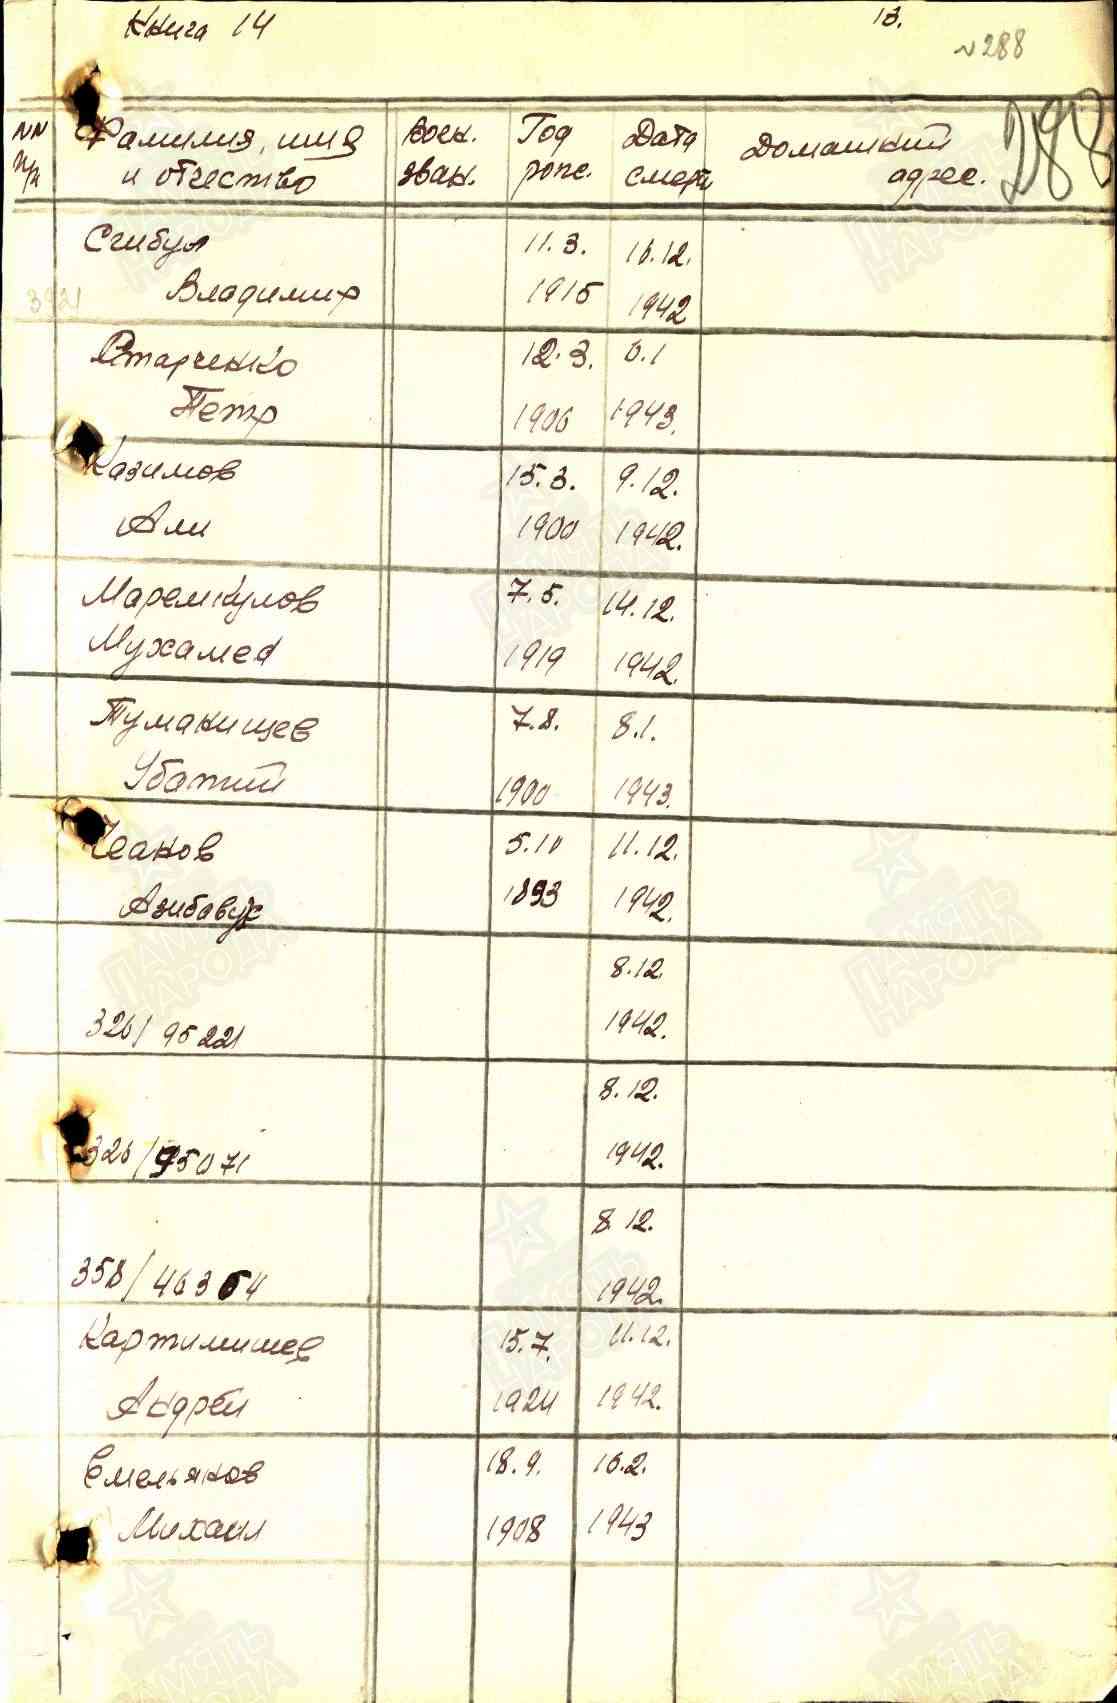 Книга 14
13.
№288
288
NN п/п Фамилия, имя и отчество Воен. зван. Год рожд. Дата смерти Домашний адрес.
Сгибул 11.3. 16.12.
3921 Владимир 1915 1942
Старченко 12.3. 6.1
Петр 1906 1943.
Казимов 15.3. 9.12.
Али 1900 1942.
Маремкулов 7.5. 14.12.
Мухамед 1919 1942.
Туманищев 7.8. 8.1.
Убатий 1900 1943.
5.10 11.12.
1893 1942.
8.12.
326/95221 1942.
8.12.
326/95071 1942.
8.12.
358/46354 1942.
Картимишев 15.7. 11.12.
Андрей 1924 1942.
Емельянов 18.9. 16.2.
Михаил 1908 1943
ПАМЯТЬ НАРОДА
ПАМЯТЬ НАРОДА
ПАМЯТЬ НАРОДА
ПАМЯТЬ НАРОДА
ПАМЯТЬ НАРОДА
ПАМЯТЬ НАРОДА
ПАМЯТЬ НАРОДА
ПАМЯТЬ НАРОДА